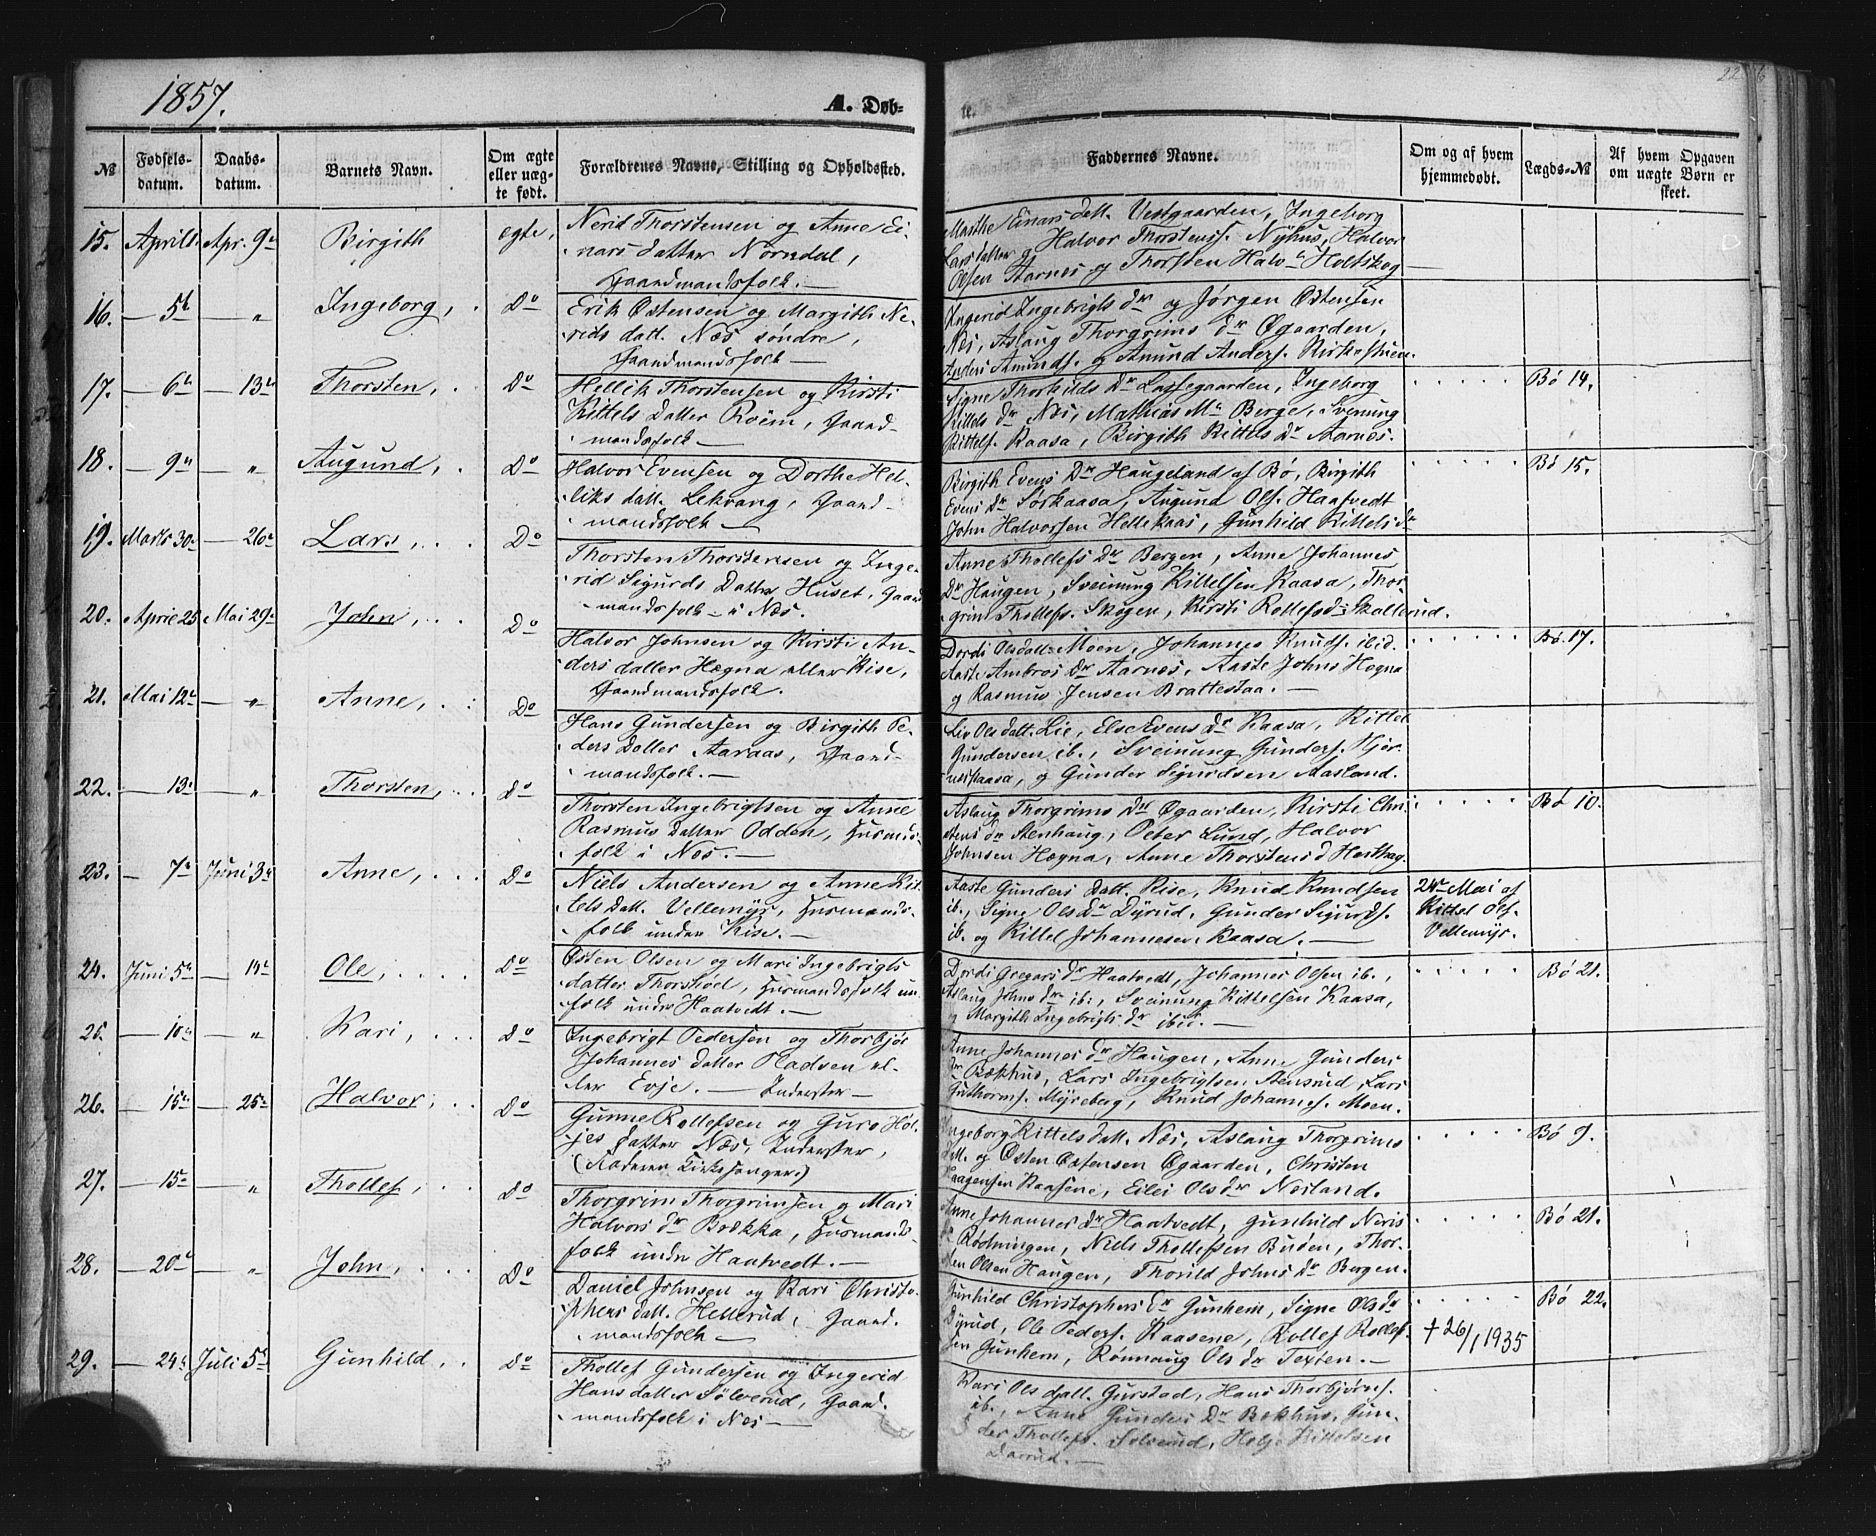 1857.
A. Døb-
te.
22
№
Fødsels-
datum.
Daabs-
datum.
Barnets Navn.
Om ægte
eller uæg-
te født.
Forældrenes Navne, Stilling og Opholdssted.
Faddernes Navne.
Om og af hvem
hjemmedøbt.
Lægds-№
Af hvem Opgaven
om uægte Børn er
skeet.
15. April Apr. 9 Birgith ægte, Nerid Thorstensen og Anne Ei-
nars datter Norndal,
Gaardmandsfolk. —
Marthe Einars datt. Vestgaarden, Ingeborg
Lars datter Halvor Thorstens. Nyhus, Halvor
Olsen Aarnes og Thorsten Halv Holtskog
16. — 5t — " Ingeborg, Do Erik Østensen og Margith Ne-
rids datt. Næs søndre,
Gaardmandsfolk —
Ingerid Ingebrigts dr og Jørgen Østensen
Næs, Aslaug Thorgrims dr Øgaarden,
Anders Amunds. og Amund Anders. Kirkestuen.
17. — 6 — 13 Thorsten, Do Hellik Thorstensen og Kirsti
Kittels datter Roem, Gaard-
mandsfolk —
Signe Thorkilds Dr Lassegaarden, Ingeborg
Kittels dr Næs, Mathias M Berge, Svenung
Kittels. Kaasa, Birgith Kittels Dr Aarnes.
Bø 14.
18. — 9 — " Augund, Do Halvor Evensen og Dorthe Hel-
liks datt. Lekvang, Gaard-
mandsfolk —
Birgith Evens Dr Haugeland af Bø, Birgith
Evens Dr Sørkaasa, Augund Ols. Haatvedt
John Halvorsen Hellekaas, Gunhild Kittels dr
Bø 15.
19. Marts 30 — 26 Lars, Do Thorsten Thorstensen og Inge-
rid Sigurds Datter Huset, Gaard
mandsfolk i Næs.
Anne Thollefs Dr Bergen, Anne Johannes
Dr Haugen, Sveinung Kittelsen Kaasa, Thor-
grim Thollefs. Skogen, Kirsti Rollefsd: Skallerud.
20. April 25 Mai 29 John, Do Halvor Johnsen og Kirsti An-
ders datter Hægna eller Kise,
Gaardmandsfolk.
Dordi Olsdatt. Moen, Johannes Knuds. ibid.
Aaste Ambros Dr Aarnes, Aaste Johns Hægna
og Rasmus Jensen Brattestaa. —
Bø. 17.
21. Mai 12 — " Anne, Do Hans Gundersen og Birgith Pe-
ders Datter Aaraas, Gaard-
mandsfolk. —
Liv Olsdatt. Lie, Else Evens Dr Kaasa, Kittel
Gundersen ib., Sveinung Gunders. Hjør-
neskaasa, og Gunder Sigurdsen Aasland.
22. — 13 — " Thorsten, Do Thorsten Ingebrigtsen og Anne
Rasmus datter Odden, Husmands-
folk i Næs. —
Aslaug Thorgrims Dr Øgaarden, Kirsti Chri-
stens dr Stenhaug, Peter Lund, Halvor
Johnsen Hægna, Anne Thorstens d
Bø 10.
23. — 7 Juni 3 Anne, Do Niels Andersen og Anne Kit-
tels Datt. Vellemyr, Husmands-
folk under Kise. —
Aaste Gunders Datt. Kise, Knud Knudsen
ib., Signe Ols Dr Dyrud, Gunder Sigurds.
ib. og Kittel Johannesen Kaasa. —
24 Mai af
Kittel Ols.
Vellemyr.
24. Juni 5 — 14 Ole, Do Østen Olsen og Mari Ingebrigts
datter Thorshoel, Husmandsfolk un
folk under Haatvedt. —
Dordi Gregars dr Haatvedt, Johannes Olsen ib.,
Aslaug Johns dr ib:, Sveinung Kittelsen Kaasa,
og Margith Ingebrigts dr ibid. —
Bø 21.
25. — 10 — " Kari, Do Ingebrigt Pedersen og Thorbjør
Johannes datter Pladsen el-
ler Evje. — Inderster —
Anne Johannes dr Haugen, Anne Gunders
dr Bækhus, Lars Ingebrigtsen Stensrud, Lars
Guthorms. Myreberg, Knud Johannes. Moen.
26. — 15 — 25 Halvor, Do Gunne Rollefsen og Guro Hol-
jes Datter Næs, Inderster,
(Faderen Kirkesanger.)
Ingeborg Kittels datt. Næs, Aslaug Thorgrims
Datt. og Østen Østensen Øgaarden, Christen
Haagensen Kaasene, Eilei Ols dr Nesland.
Bø 9.
27. — 15 — " Thollef, Do Thorgrim Thorgrimsen og Mari
Halvors dr Bækka, Husmands-
folk under Haatvedt. —
Anne Johannes dr Haatvedt, Gunhild Neris
dr Rodningen, Niels Thollefsen Buøen, Thor-
sten Olsen Haugen, Thorild Johns Dr Bergen.
Bø 21.
28. — 20 — " John, Do Daniel Johnsen og Kari Christo-
phers datt. Hellerud, Gaard-
mandsfolk —
Gunhild Christophers Dr Gunhem, Signe Ols dr
Dyrud, Ole Peders. Kaasene, Rollef Rollef-
sen Gunhem, Rønnaug Ols dr Texten. —
+ 26/1 1935
Bø 22.
29. — 24 Juli 5 Gunhild, Do Thollef Gundersen og Ingerid
Hans datter Sølverud, Gaard-
mandsfolk i Næs —
Kari Ols datt. Gurstad, Hans Thorbjørns.
ib., Anne Gunders Dr Bækhus, Gun-
der Thollefs. Solverud, Helje Kittelsen
Daarud. —